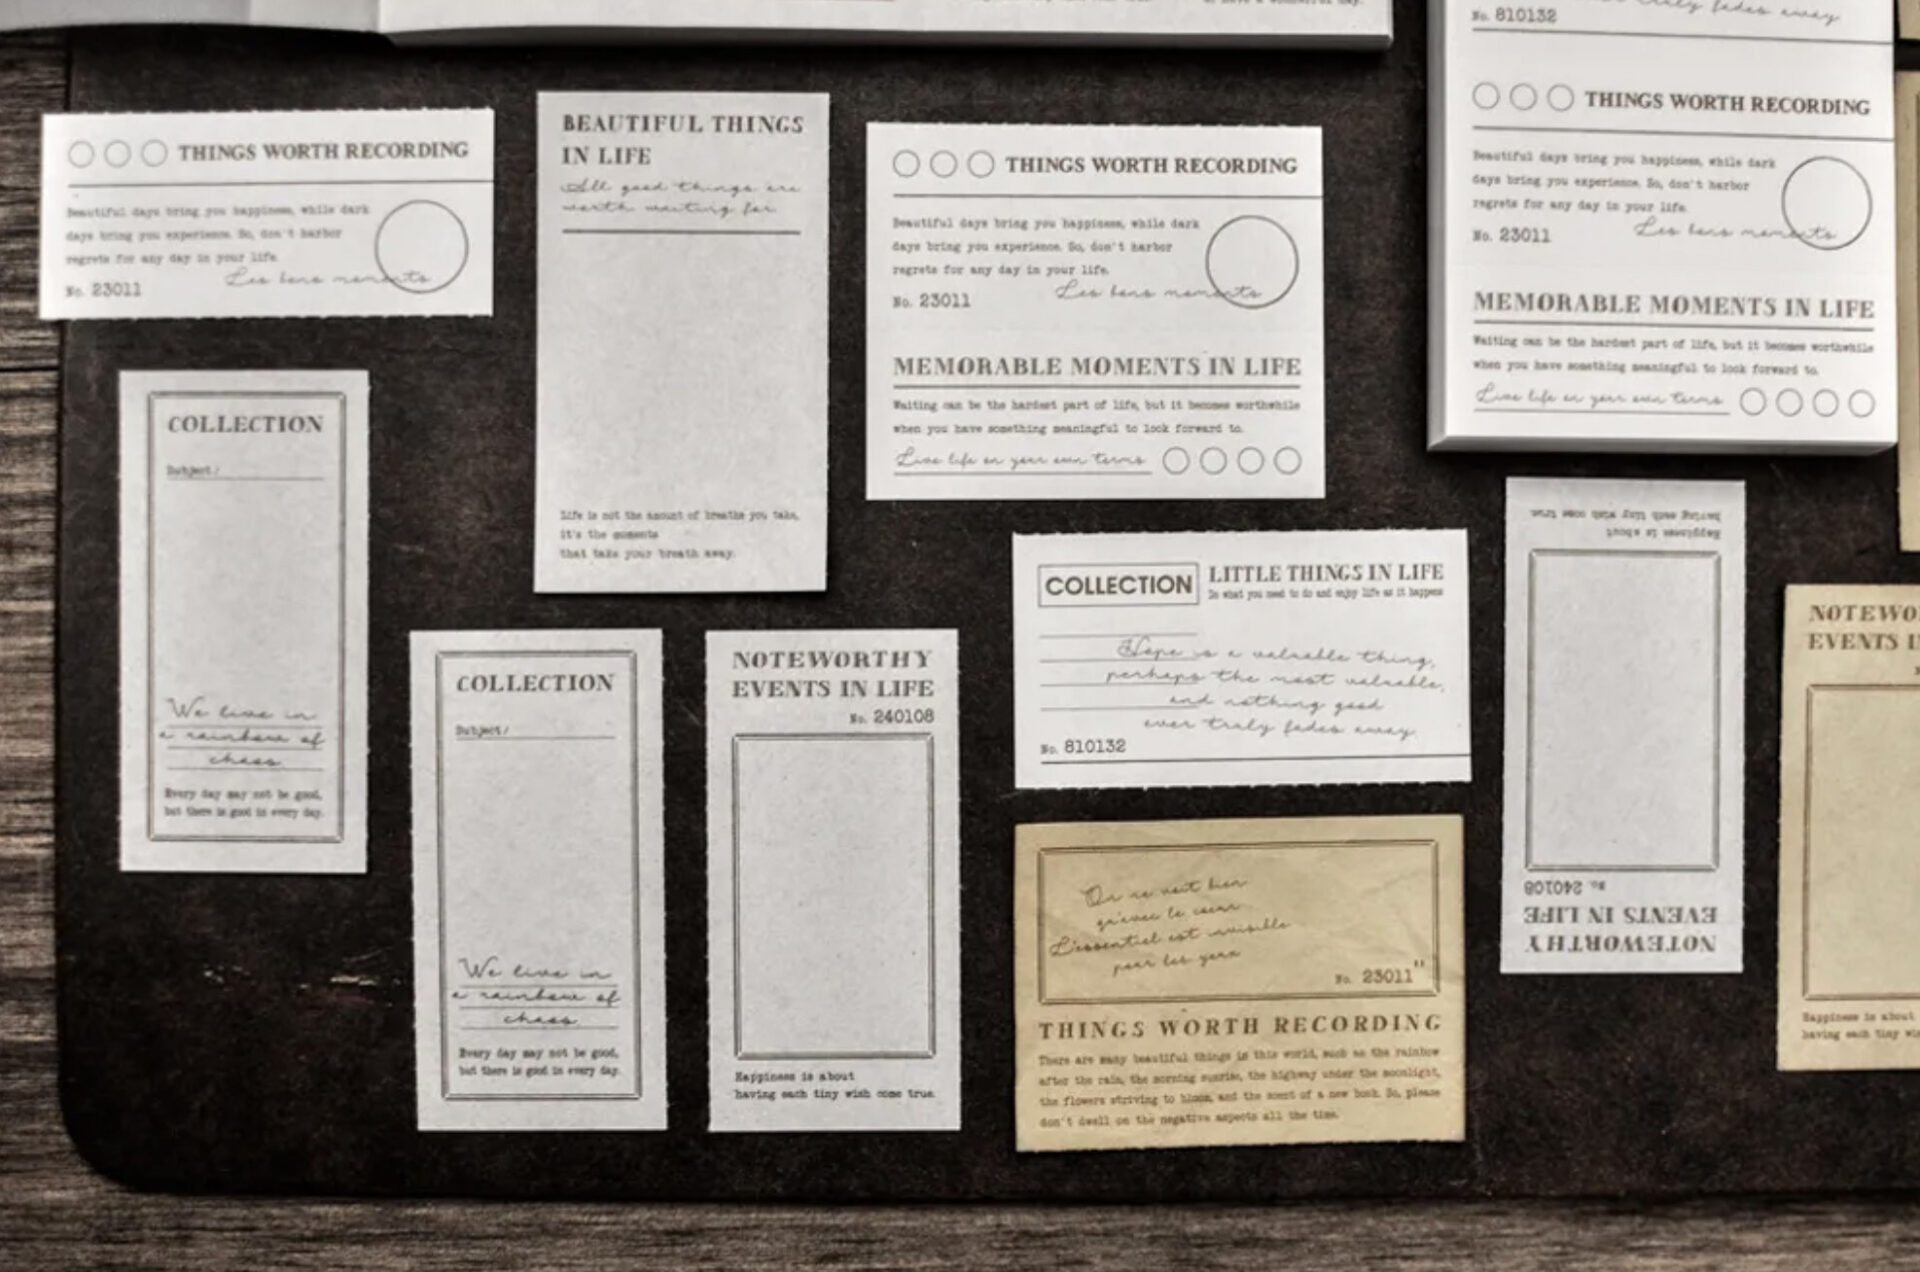 No. 810132
truly fades away
THINGS WORTH RECORDING
Beautiful days bring you happiness, while dark
days bring you experience. So, don't harbor
regrets for any day in your life.
No. 23011
Les bons moments
MEMORABLE MOMENTS IN LIFE
Waiting can be the hardest part of life, but it becomes worthwhile
when you have something meaningful to look forward to.
Live life on your own terms
THINGS WORTH RECORDING
Beautiful days bring you happiness, while dark
days bring you experience. So, don't harbor
regrets for any day in your life.
Les bons moments
No. 23011
BEAUTIFUL THINGS
IN LIFE
All good things are
worth waiting for
Life is not the amount of breaths you take,
it's the moments
that take your breath away.
THINGS WORTH RECORDING
Beautiful days bring you happiness, while dark
days bring you experience. So, don't harbor
regrets for any day in your life.
Les bons moments
No. 23011
MEMORABLE MOMENTS IN LIFE
Waiting can be the hardest part of life, but it becomes worthwhile
when you have something meaningful to look forward to.
Live life on your own terms
COLLECTION
Subject/
We live in
a rainbow of
chaos
Every day may not be good,
but there is good in every day.
COLLECTION
Subject/
We live in
a rainbow of
chaos
Every day may not be good,
but there is good in every day.
NOTEWORTHY
EVENTS IN LIFE
No. 240108
Happiness is about
having each tiny wish come true
COLLECTION
LITTLE THINGS IN LIFE
Do what you need to do and enjoy life as it happens
Hope is a valuable thing,
perhaps the most valuable,
and nothing good
ever truly fades away.
No. 810132
On ne voit bien
qu'avec le cœur
L'essentiel est invisible
pour les yeux
No. 23011"
THINGS WORTH RECORDING
There are many beautiful things in this world, such as the rainbow
after the rain, the morning sunrise, the highway under the moonlight,
the flowers striving to bloom, and the scent of a new book. So, please
don't dwell on the negative aspects all the time.
NOTEWORTHY
EVENTS IN LIFE
No. 240108
Happiness is about
having each tiny wish come true
NOTEWO
EVENTS I
Happiness is about
having each tiny wi